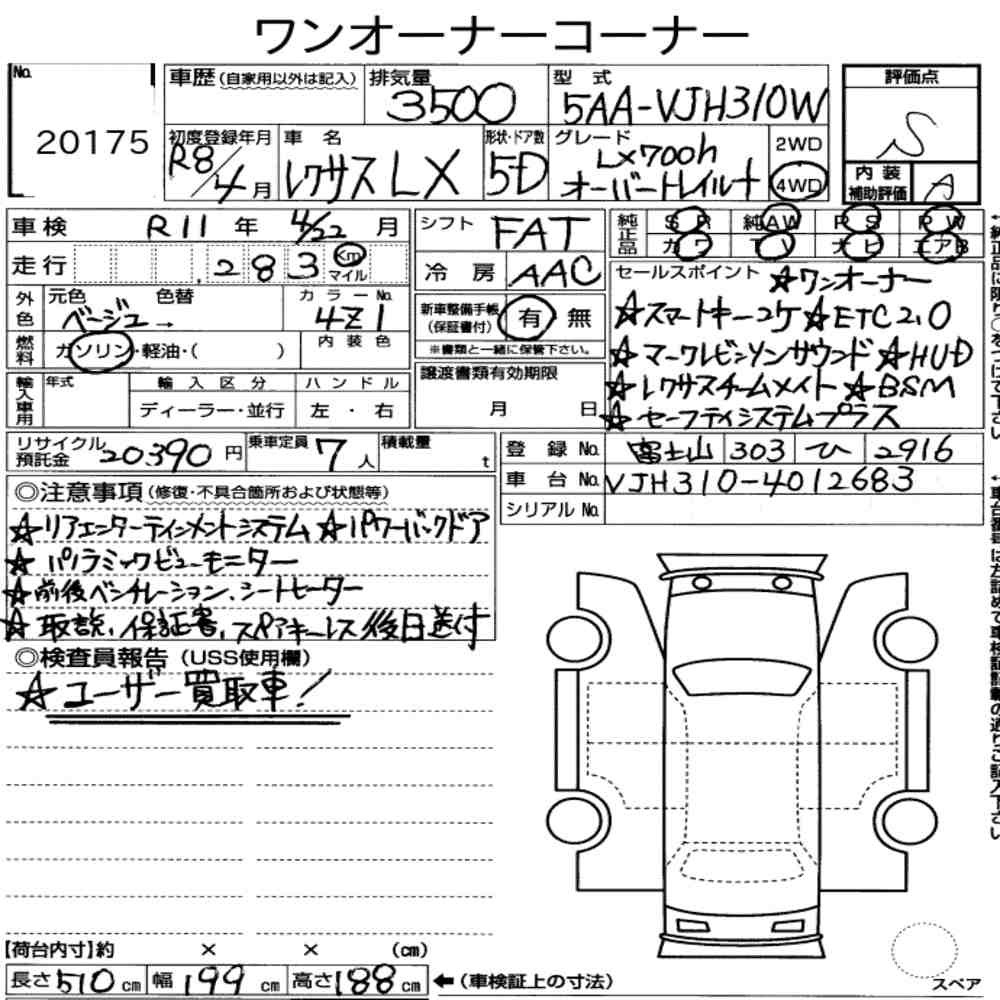 ワンオーナーコーナー
No. 20175
車歴(自家用以外は記入)
排気量 3500
型式 5AA-VJH310W
評価点 S
内装補助評価 A
初度登録年月 R8/4月
車名 レクサスLX
形状・ドア数 5D
グレード LX700h オーバートレイル+
2WD
4WD
車検 R11年 4/22月
走行 283 Km マイル
シフト FAT
冷房 AAC
純正品 SR 純AW PS PW
カワ TV ナビ エアB
外色 元色 色替 ベージュ→
カラーNo. 4Z1
内装色
燃料 ガソリン・軽油・( )
新車整備手帳(保証書付) 有 無
※書類と一緒に保管下さい。
譲渡書類有効期限 月 日
輸入車用 年式 輸入区分 ハンドル
ディーラー・並行 左・右
セールスポイント ☆ワンオーナー
☆スマートキー2ケ☆ETC2.0
☆マークレビンソンサウンド☆HUD
☆レクサスチームメイト☆BSM
☆セーフティシステムプラス
リサイクル預託金 20390円
乗車定員 7人
積載量 t
登録No. 富士山 303 ひ 2916
車台No. VJH310-4012683
シリアルNo.
◎注意事項(修復・不具合箇所および状態等)
☆リアエンターテインメントシステム☆パワーバックドア
☆パノラミックビューモニター
☆前後ベンチレーション、シートヒーター
☆取説、保証書、スペアキーレス後日送付
◎検査員報告(USS使用欄)
☆ユーザー買取車!
【荷台内寸】約 × × (cm)
長さ510cm 幅199cm 高さ188cm ←(車検証上の寸法)
スペア